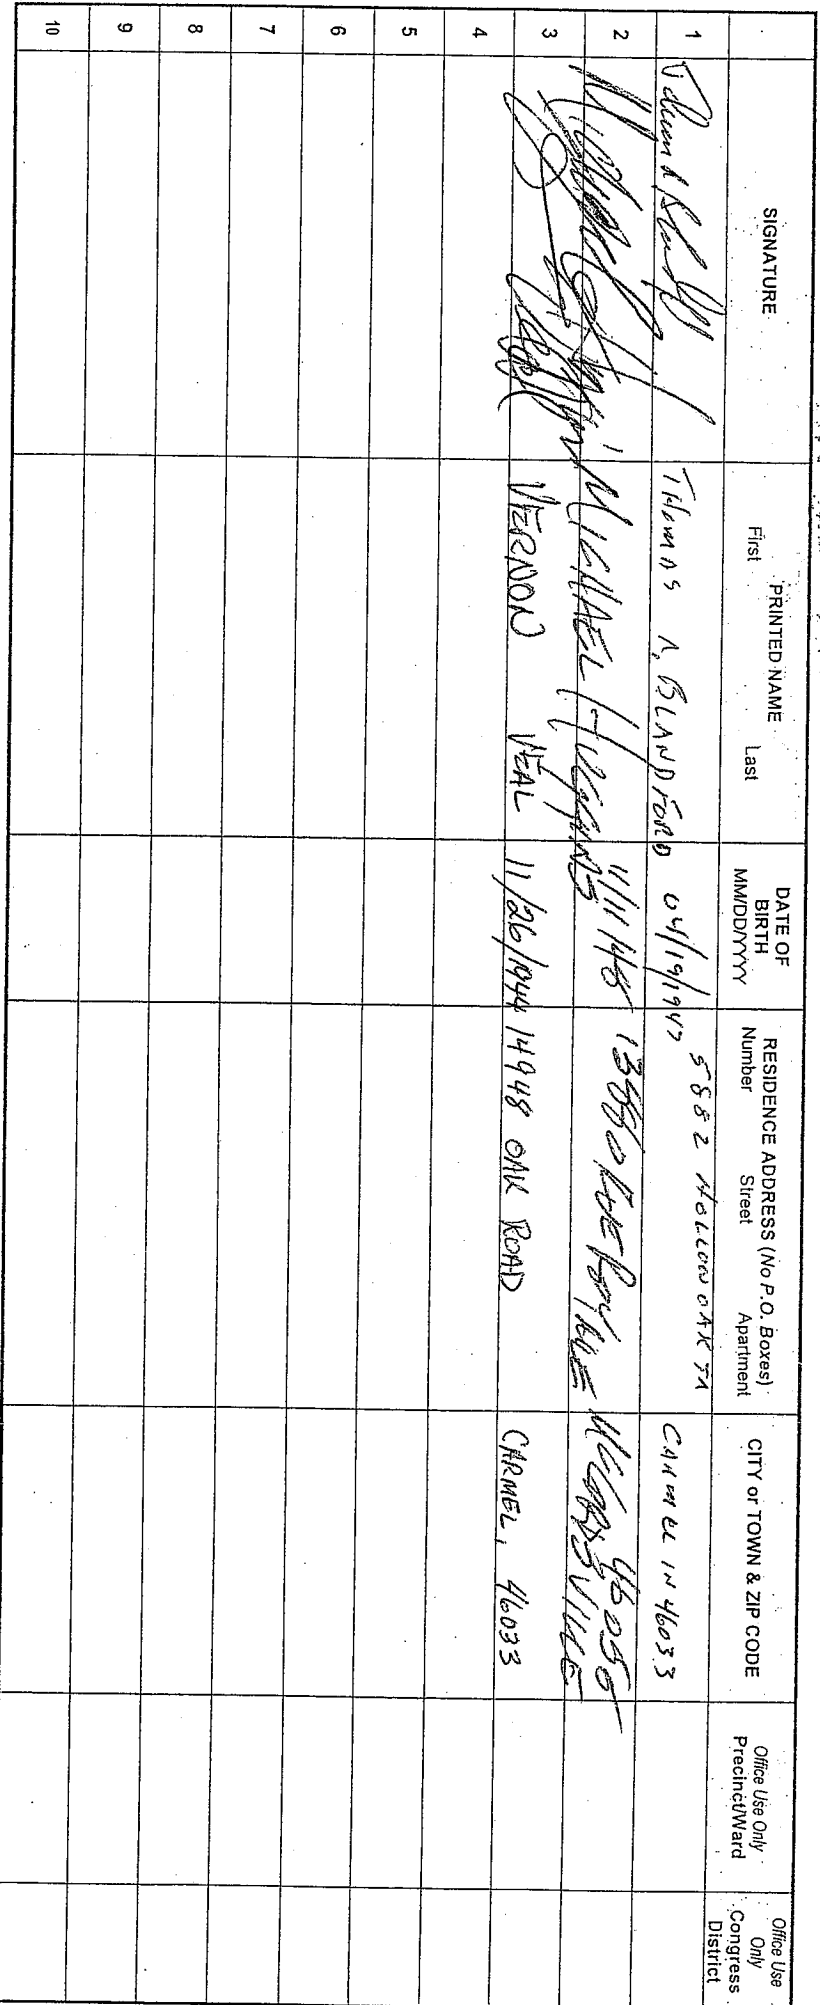 SIGNATURE
PRINTED NAME
First Last
DATE OF
BIRTH
MM/DD/YYYY
RESIDENCE ADDRESS (No P.O. Boxes)
Number Street Apartment
CITY or TOWN & ZIP CODE
Office Use Only
Precinct/Ward
Office Use
Only
Congress
District
1 THOMAS A. BLANDFORD 04/19/1947 5882 HOLLOW OAK CARMEL IN 46033
2 MICHAEL HUGGINS 11/11/48 AVE MCCORDSVILLE
3 VERNON VEAL 11/26/1944 14948 OAK ROAD CARMEL, 46033
4
5
6
7
8
9
10